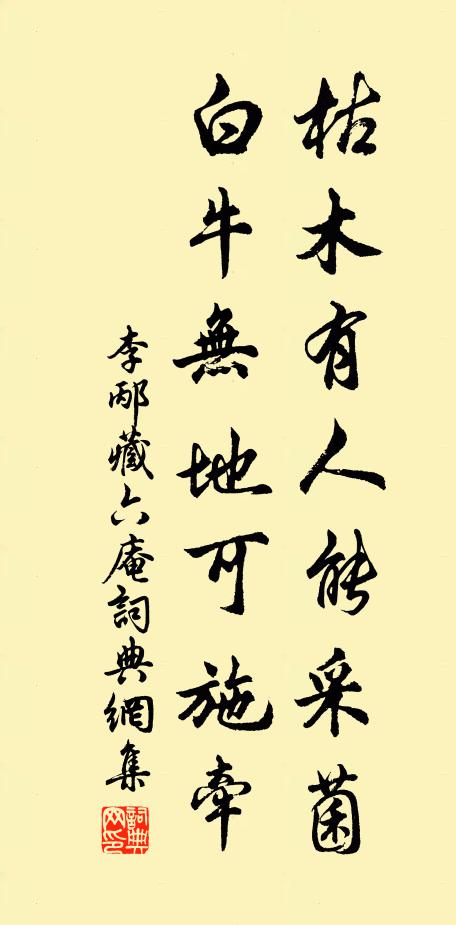 枯木有人能采菌
白牛無地可施牽
李邴藏六庵詞典網集
詞典網印